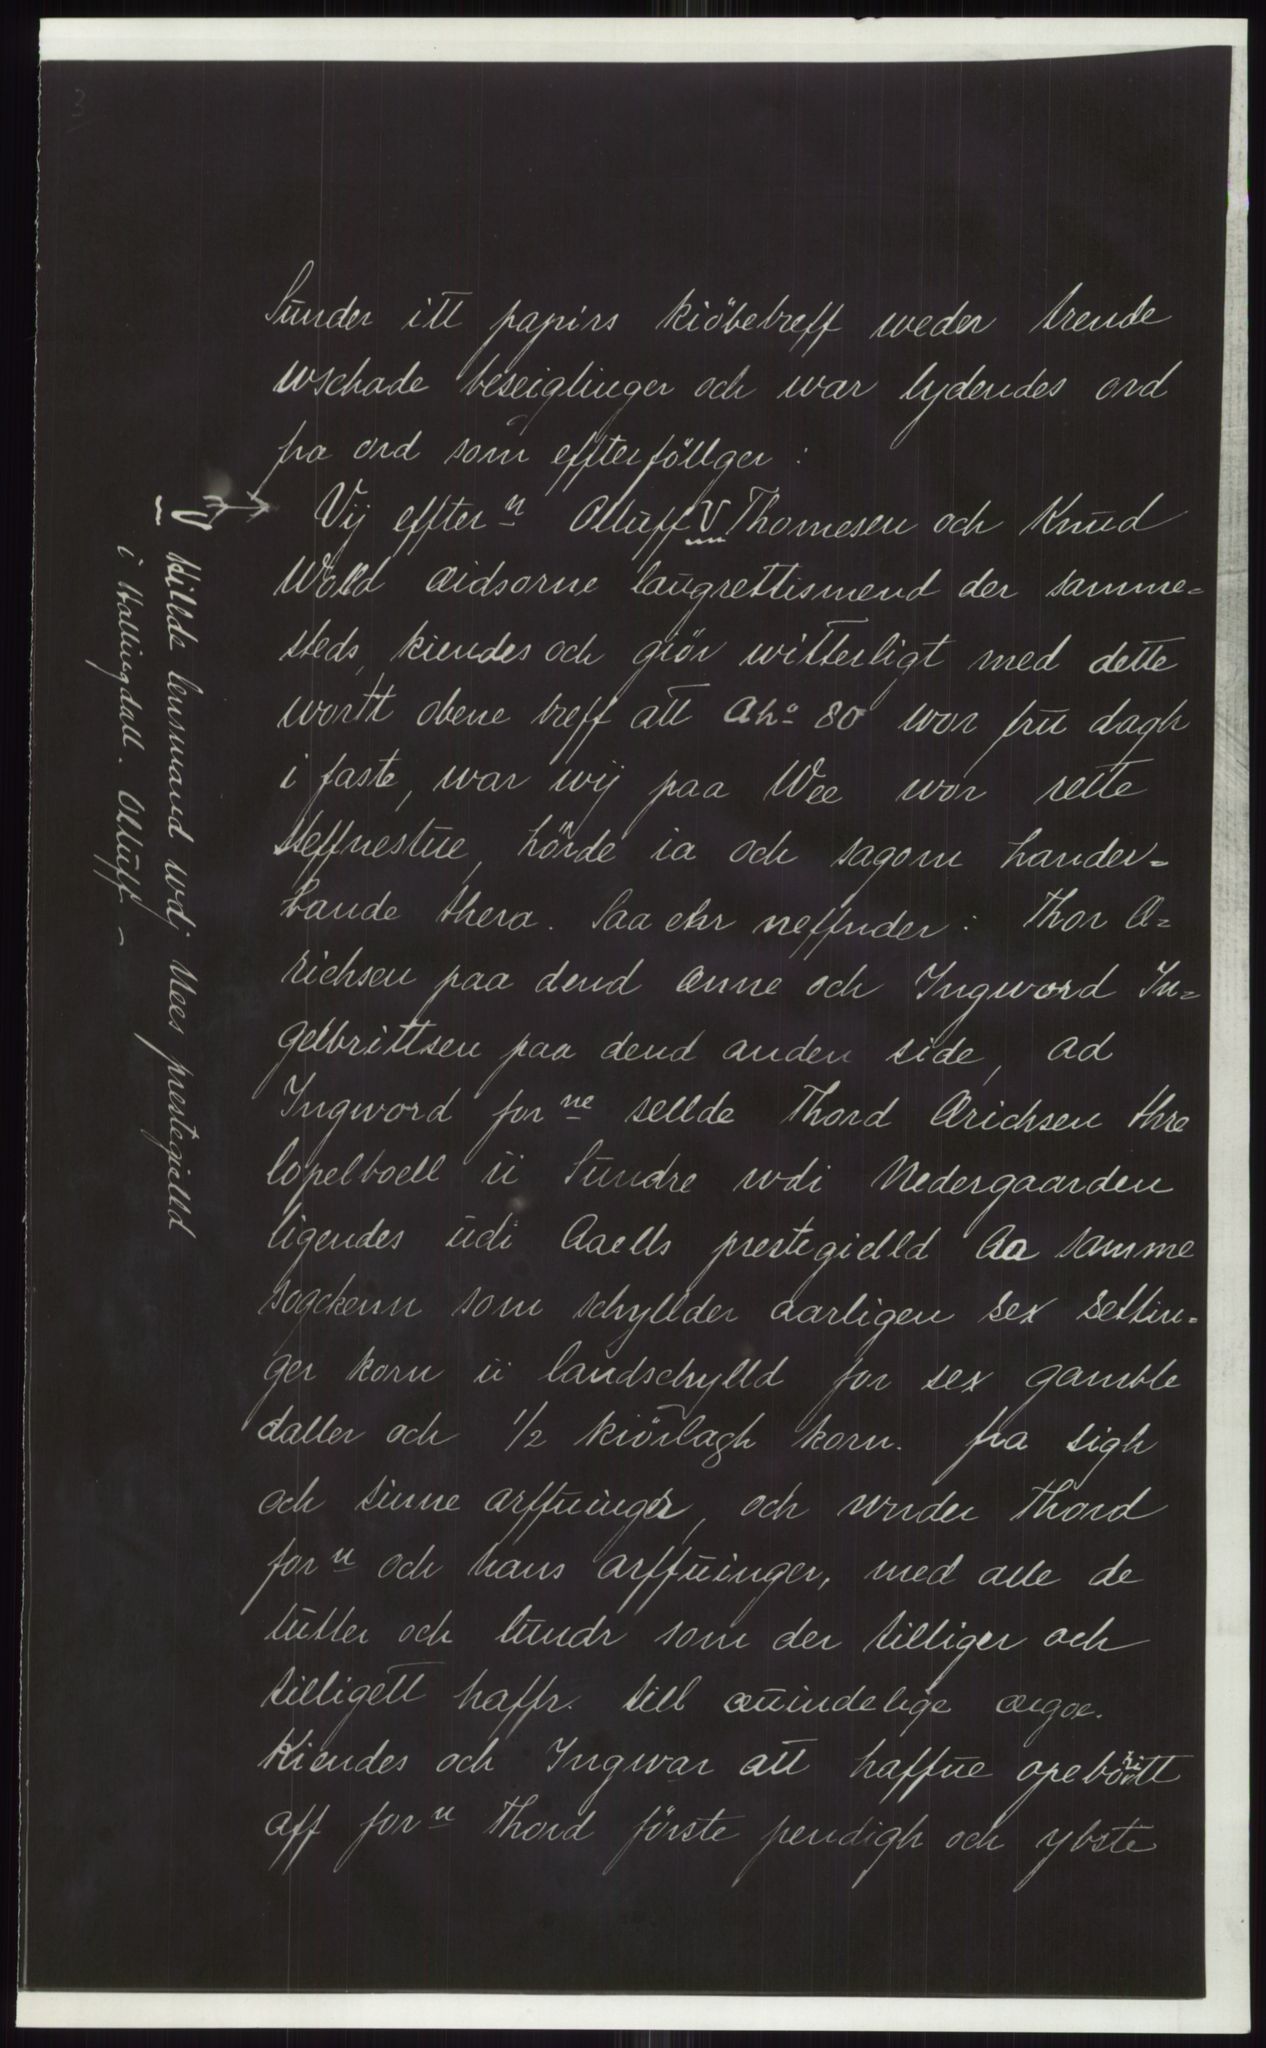 3
Sunder itt papirs kiöbebreff weder trende
wschade beseiglinger och war lydendes ord
fra ord som effterföllger:
Vij effter n Olluff V Thomesen och Knud
Wolld æidsorne laugrettismend der samme=
steds, kiendes och giör witterligt med dette
wortt obene breff att Aho 80 wor fru dagh
i faste, war wij paa Wee wor rette
steffnestue, hörde ia och sagom hander=
bande thera. Saa ehr neffnder: Thor Æ=
richsen paa dend ænne och Ingword In=
gelbrittsen paa dend anden side, ad
Ingword for ne sellde Thord Ærichsen thre
löpelboell ii Sundre wdi Nedergaarden
ligendes udi Aaells prestegielld Aa samme
sogckenn som schyllder aarligen sex settin=
ger korn ii landschylld for sex gamble
daller och 1/2 kiörlagh korn. fra sigh
och sinne arffuinger, och wnder Thord
for n och hans arffuinger, med alle de
lutter och lundr som der tilliger och
tilligett haffr. till æuindelige æigæ.
Kiendes och Ingwar att haffue opebö ri tt
aff for n Thord förste pendigh och ybste
V Hilldz lensmand wdj Nees prestegielld
i Hallingdall. Olluff –